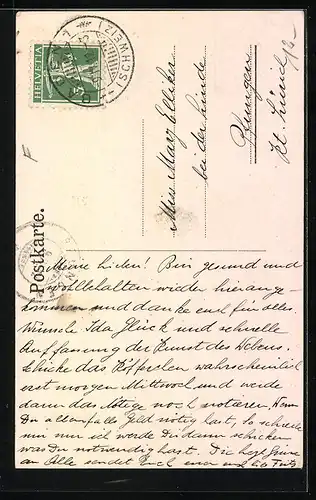 HELVETIA
(SCHWEIZ)
Postkarte.
Miss Mary Elliker
bei der Linde
Kt. Zürich
Meine Lieben! Bin gesund und
wohlbehalten wieder hier ange-
kommen und danke euch für alles.
Wünsche Ida Glück und schnelle
Auffassung der Kunst des Webens.
Schicke das Köfferchen wahrscheinlich
erst morgen Mittwoch und werde
dann das Nötige noch notieren. Wenn
Du allenfalls Geld nötig hast, so schreibe
nur mir ich werde Dir dann schicken
was Du notwendig hast. Die herzl. Grüsse
an Alle sendet Euch euer